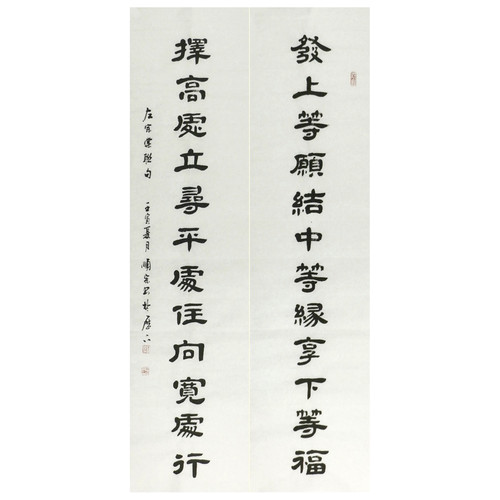 發上等願結中等緣享下等福
擇高處立尋平處住向寬處行
左宗棠聯句
壬寅夏月